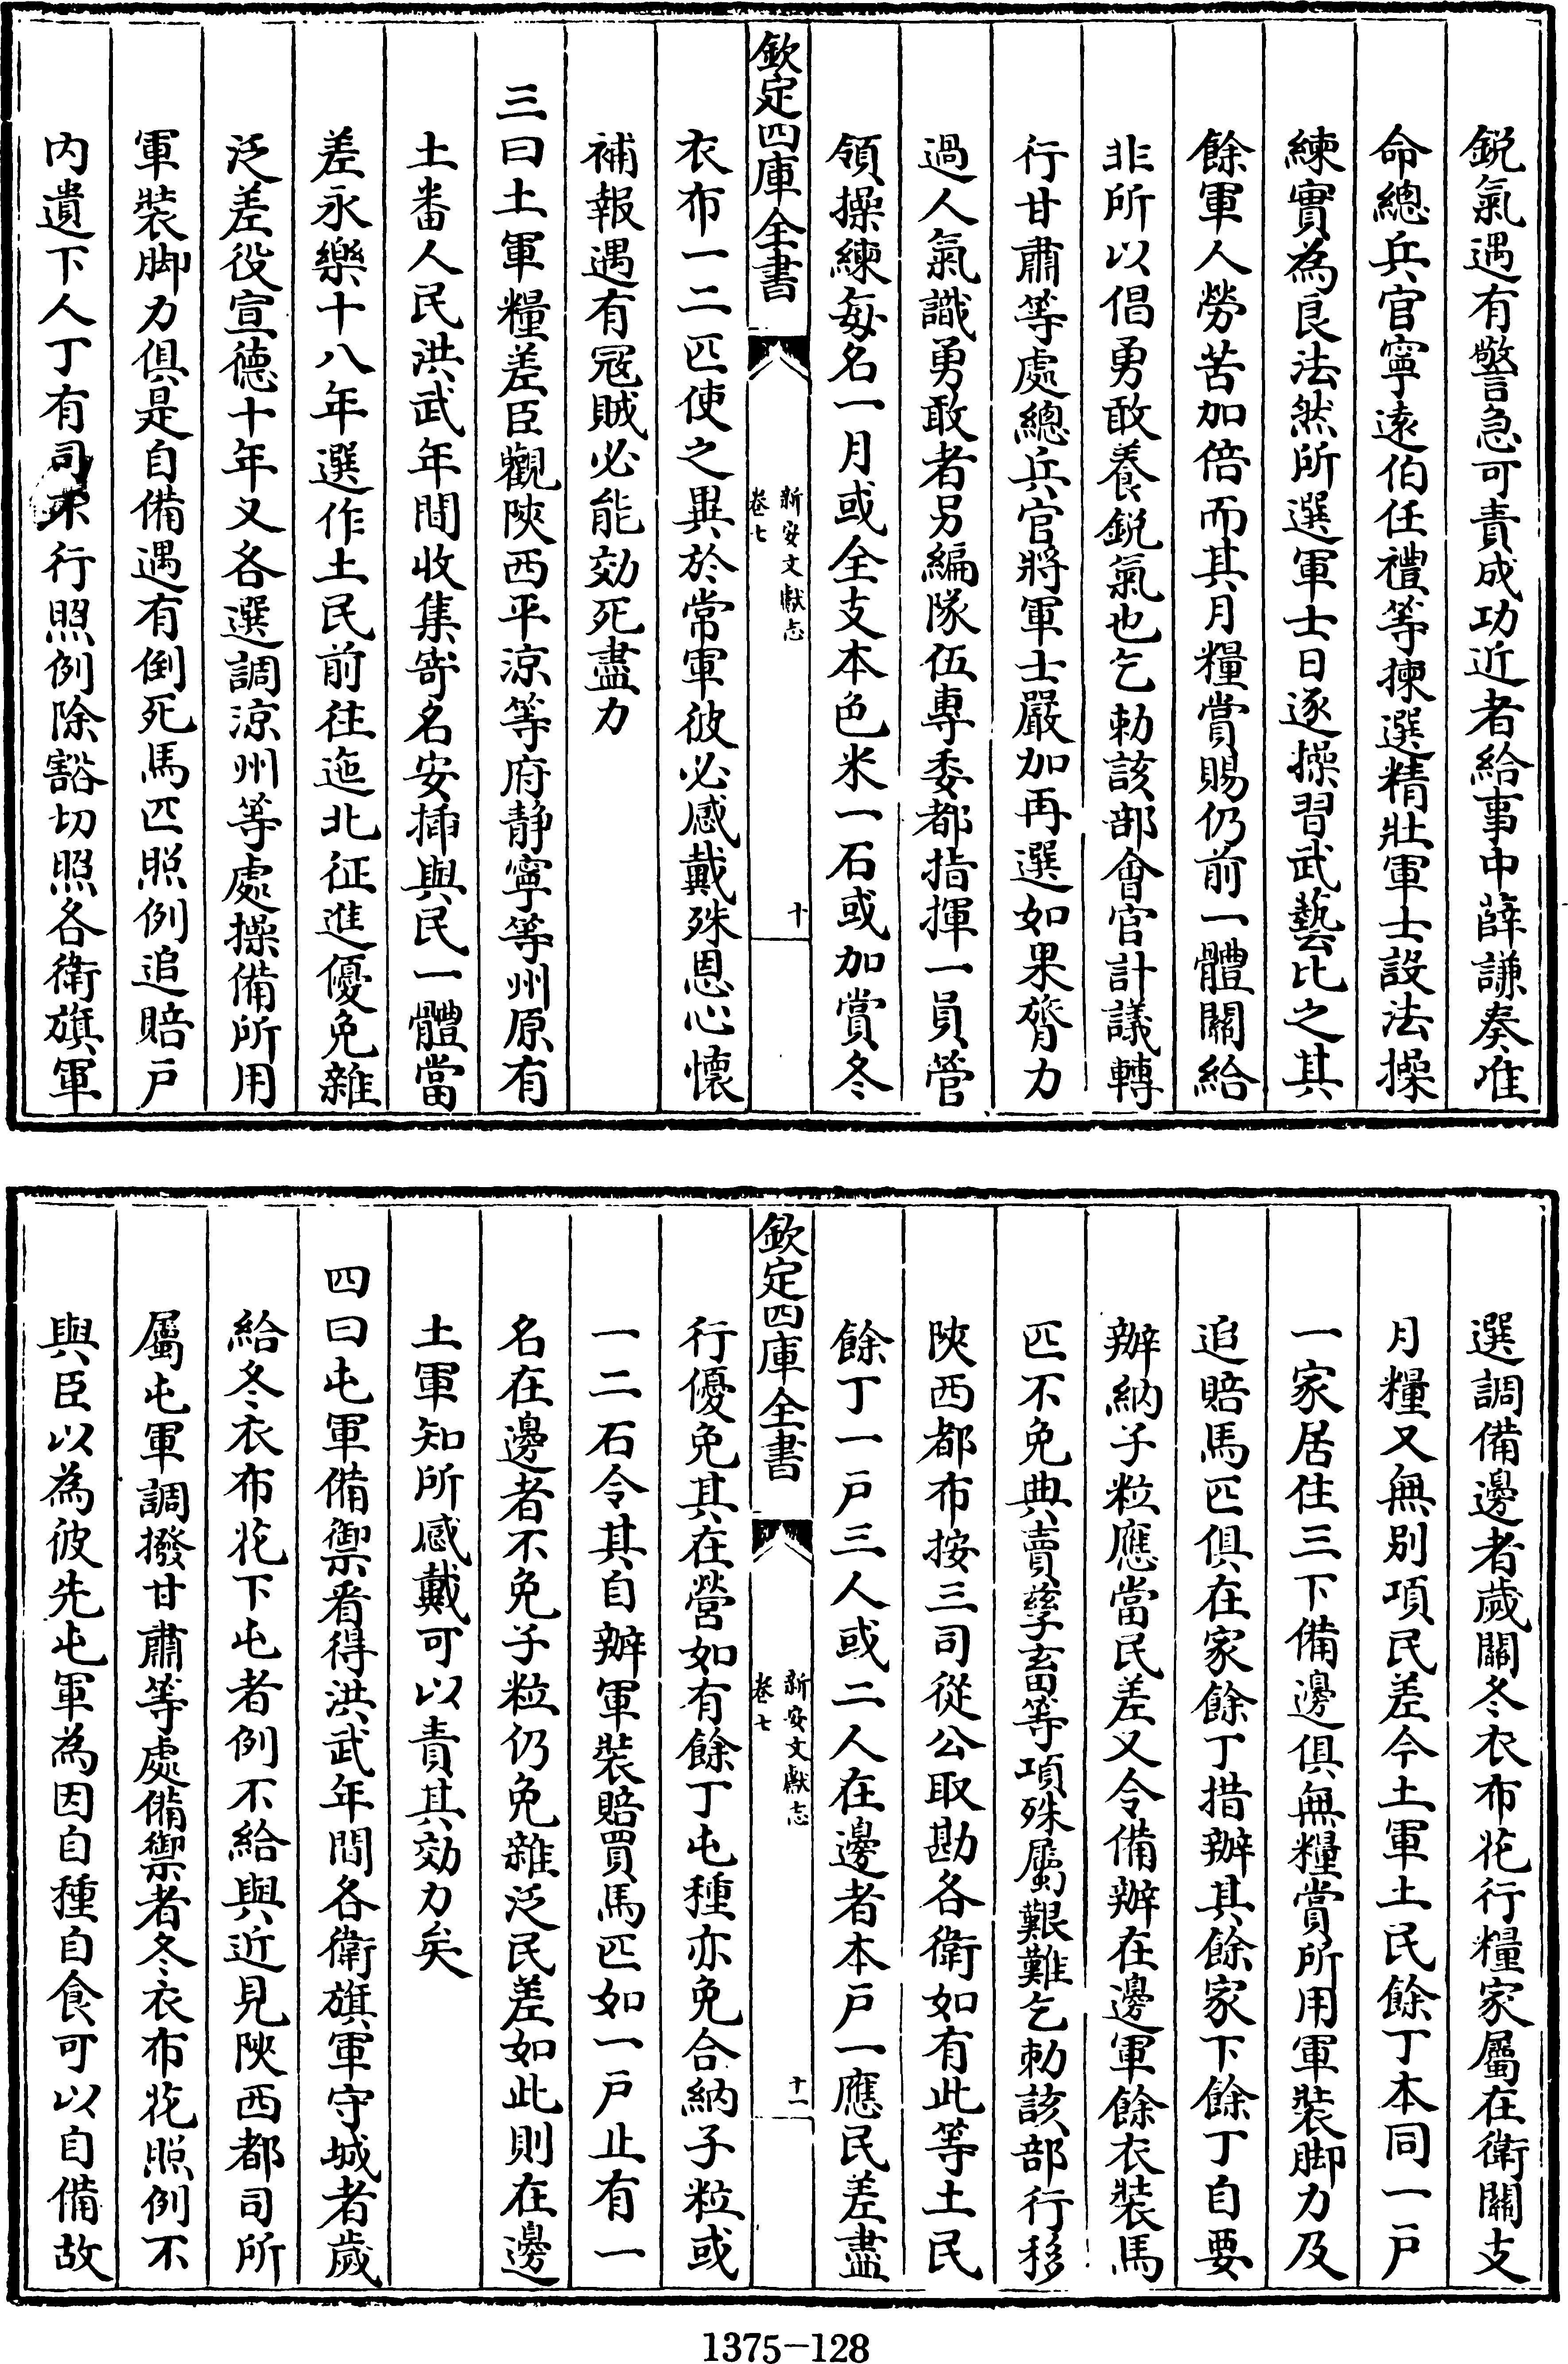 鋭氣遇有警急可責成功近者給事中薛謙奏准
命總兵官寧遠伯任禮等揀選精壯軍士設法操
練實為良法然所選軍士日逐操習武藝比之其
餘軍人勞苦加倍而其月糧賞賜仍前一體關給
非所以倡勇敢養鋭氣也乞勅該部會官計議轉
行甘肅等處總兵官將軍士嚴加再選如果膂力
過人氣識勇敢者另編隊伍專委都指揮一員管
領操練每名一月或全支本色米一石或加賞冬
欽定四庫全書
新安文獻志
卷七
十
衣布一二匹使之異於常軍彼必感戴殊恩心懷
補報遇有冦賊必能効死盡力
三曰土軍糧差臣觀陝西平涼等府静寧等州原有
土畨人民洪武年間收集寄名安揷與民一體當
差永樂十八年選作土民前往迤北征進優免雜
泛差役宣德十年又各選調涼州等處操備所用
軍裝脚力俱是自備遇有倒死馬匹照例追賠户
内遺下人丁有司不行照例除豁切照各衛旗軍
選調備邊者歲關冬衣布花行糧家屬在衛關支
月糧又無别項民差今土軍土民餘丁本同一户
一家居住三下備邊俱無糧賞所用軍裝脚力及
追賠馬匹俱在家餘丁措辦其餘家下餘丁自要
辦納子粒應當民差又令備辦在邊軍餘衣裝馬
匹不免典賣孳畜等項殊屬艱難乞勅該部行移
陝西都布按三司從公取勘各衛如有此等土民
餘丁一户三人或二人在邊者本户一應民差盡
欽定四庫全書
新安文獻志
卷七
十一
行優免其在營如有餘丁屯種亦免合納子粒或
一二石令其自辦軍裝賠買馬匹如一户止有一
名在邊者不免子粒仍免雜泛民差如此則在邊
土軍知所感戴可以責其効力矣
四曰屯軍備禦看得洪武年間各衛旗軍守城者歲
給冬衣布花下屯者例不給與近見陝西都司所
屬屯軍調撥甘肅等處備禦者冬衣布花照例不
與臣以為彼先屯軍為因自種自食可以自備故
1375-128